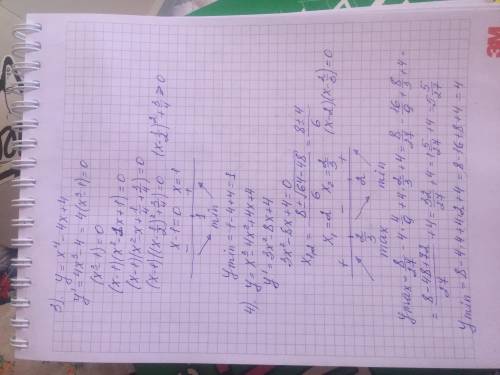 3). y = x⁴ - 4x + 4
y' = 4x³ - 4 = 4(x³-1) = 0
(x³-1) = 0
(x-1)(x²-2x+1) = 0
(x-1)(x²-x+1/4+3/4) = 0
(x+1)((x-1/2)²+3/4) = 0    (x-1/2)²+3/4 > 0
x-1=0   x=1
-   1   +
min
y min = 1-4+4 = 1
4). y = x³-4x²+4x+4
y' = 3x²-8x+4
3x²-8x+4=0
x₁,₂ = (8 ± √(64-48))/6 = (8±4)/6
x₁ = 2   x₂ = 2/3   (x-2)(x-2/3)=0
+   2/3   -   2   +
max   min
y max = 8/27 - 4·4/9 + 4·2/3 + 4 = 8/27 - 16/9 + 8/3 + 4 =
= (8-48+72)/27 + 4 = 32/27 + 4 = 1 5/27 + 4 = 5 5/27
y min = 8-4·4+4·2+4 = 8-16+8+4 = 4
3M